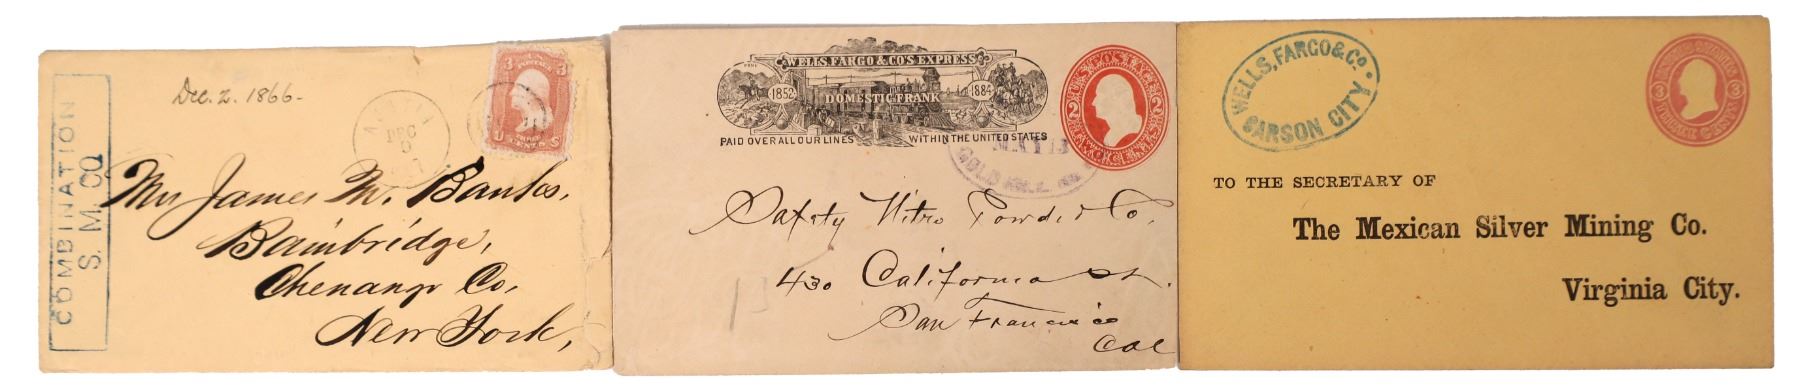 COMBINATION
S. M. CO
Dec. 2. 1866-
AUSTIN
DEC
3 POSTAGE 3
U CENTS S
Mr James M. Banks,
Bainbridge,
Chenango Co,
New York,
WELLS, FARGO & CO'S EXPRESS
1852 DOMESTIC FRANK 1884
PAID OVER ALL OUR LINES WITHIN THE UNITED STATES
2 2
MAY 13
GOLD HILL
Safety Nitro Powder Co.
430 California St.
San Francisco
Cal
WELLS, FARGO & Co.
CARSON CITY
UNITED STATES
3 3
THREE CENTS
TO THE SECRETARY OF
The Mexican Silver Mining Co.
Virginia City.